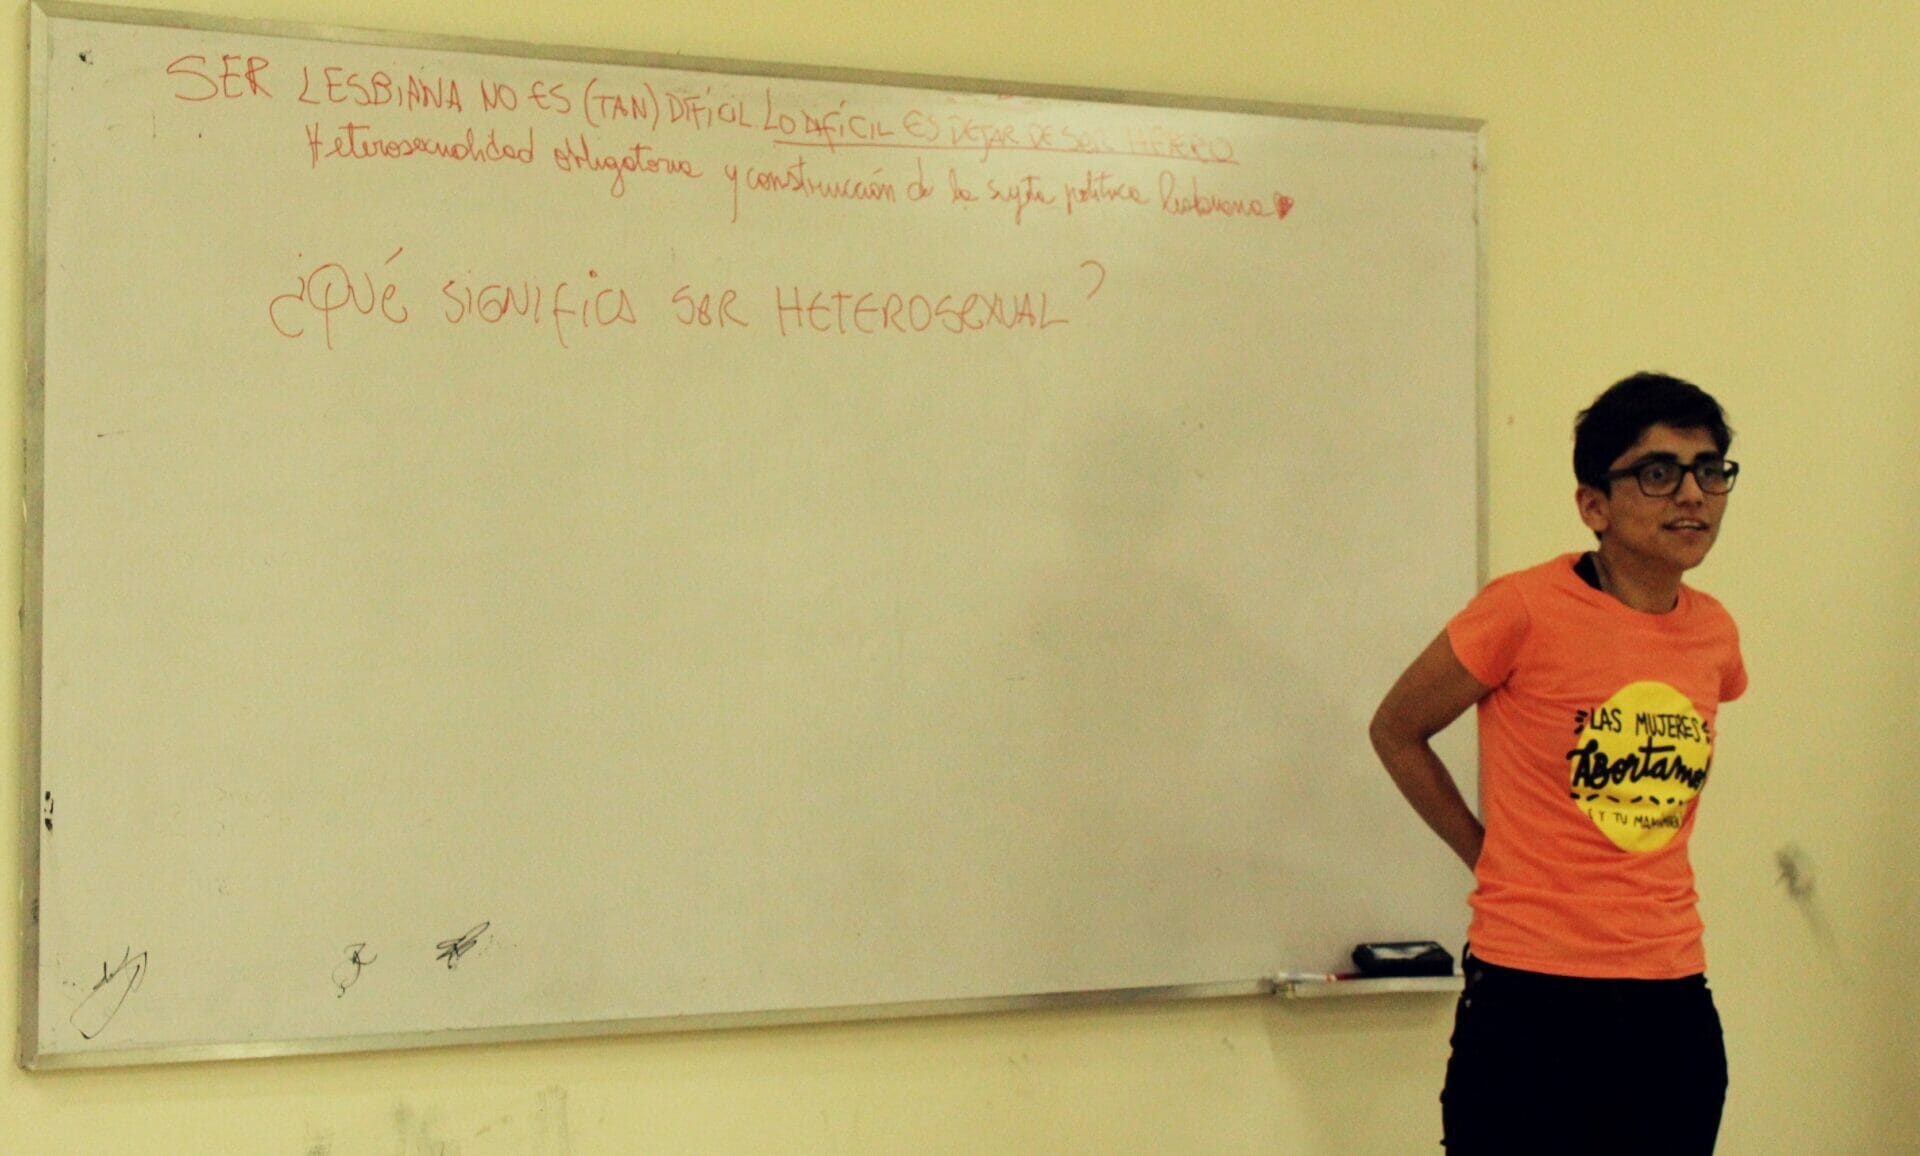 SER LESBIANA NO ES (TAN) DIFÍCIL LO DIFÍCIL ES DEJAR DE SER HETERO
Heterosexualidad obligatoria y construcción de la sujeta política lesbiana
¿QUÉ SIGNIFICA SER HETEROSEXUAL?
LAS MUJERES
Abortamos
(Y TU MAMÁ